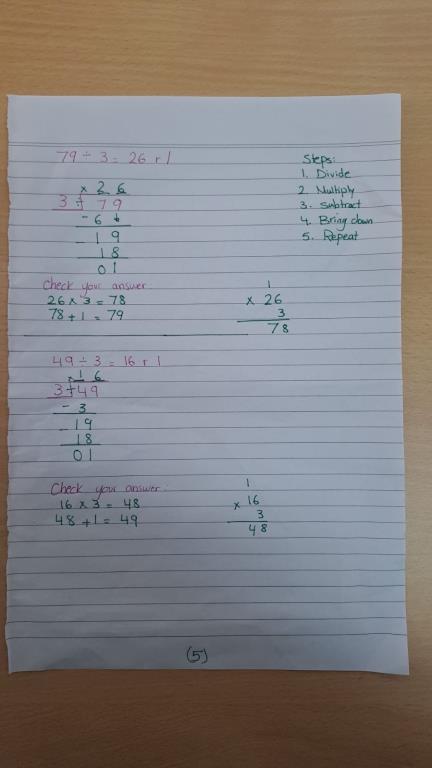 79 ÷ 3 = 26 r 1
Steps:
1. Divide
2. Multiply
3. Subtract
4. Bring down
5. Repeat
× 2 6
3 ÷ 7 9
- 6 ↓
- 1 9
1 8
0 1
Check your answer
26 × 3 = 78
78 + 1 = 79
1
× 26
3
78
49 ÷ 3 = 16 r 1
× 1 6
3 ÷ 4 9
- 3
- 1 9
1 8
0 1
Check your answer:
16 × 3 = 48
48 + 1 = 49
1
× 16
3
48
(5)